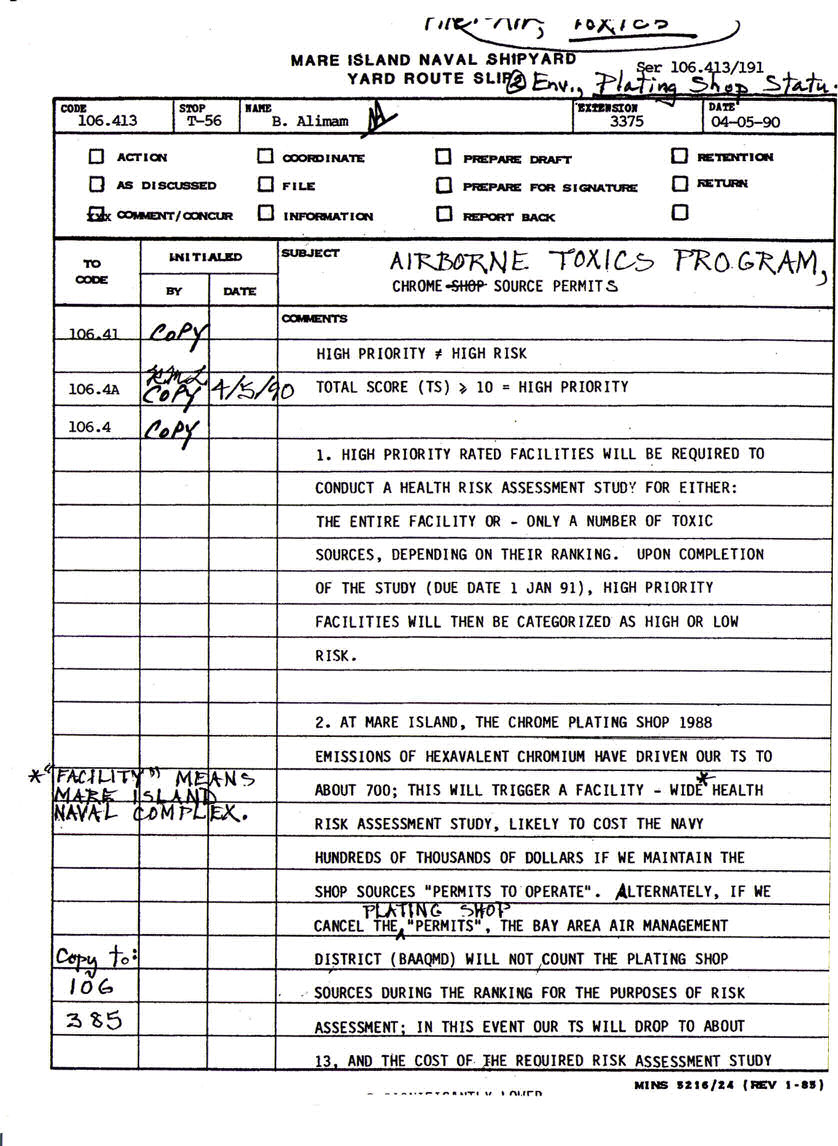 File: Air, TOXICS
MARE ISLAND NAVAL SHIPYARD
YARD ROUTE SLIP
Ser 106.413/191
② Env., Plating Shop Statu.
CODE STOP NAME EXTENSION DATE
106.413 T-56 B. Alimam 3375 04-05-90
ACTION COORDINATE PREPARE DRAFT RETENTION
AS DISCUSSED FILE PREPARE FOR SIGNATURE RETURN
xxx COMMENT/CONCUR INFORMATION REPORT BACK
TO CODE INITIALED BY DATE
SUBJECT AIRBORNE TOXICS PROGRAM,
CHROME SHOP SOURCE PERMITS
COMMENTS
106.41 COPY
HIGH PRIORITY ≠ HIGH RISK
106.4A COPY 4/5/90 TOTAL SCORE (TS) ⩾ 10 = HIGH PRIORITY
106.4 COPY
1. HIGH PRIORITY RATED FACILITIES WILL BE REQUIRED TO
CONDUCT A HEALTH RISK ASSESSMENT STUDY FOR EITHER:
THE ENTIRE FACILITY OR - ONLY A NUMBER OF TOXIC
SOURCES, DEPENDING ON THEIR RANKING. UPON COMPLETION
OF THE STUDY (DUE DATE 1 JAN 91), HIGH PRIORITY
FACILITIES WILL THEN BE CATEGORIZED AS HIGH OR LOW
RISK.
2. AT MARE ISLAND, THE CHROME PLATING SHOP 1988
EMISSIONS OF HEXAVALENT CHROMIUM HAVE DRIVEN OUR TS TO
ABOUT 700; THIS WILL TRIGGER A FACILITY - WIDE* HEALTH
RISK ASSESSMENT STUDY, LIKELY TO COST THE NAVY
HUNDREDS OF THOUSANDS OF DOLLARS IF WE MAINTAIN THE
SHOP SOURCES "PERMITS TO OPERATE". ALTERNATELY, IF WE
PLATING SHOP
CANCEL THE "PERMITS", THE BAY AREA AIR MANAGEMENT
DISTRICT (BAAQMD) WILL NOT COUNT THE PLATING SHOP
SOURCES DURING THE RANKING FOR THE PURPOSES OF RISK
ASSESSMENT; IN THIS EVENT OUR TS WILL DROP TO ABOUT
13, AND THE COST OF THE REQUIRED RISK ASSESSMENT STUDY
* "FACILITY" MEANS
MARE ISLAND
NAVAL COMPLEX.
Copy to:
106
385
MINS 5216/24 (REV 1-85)